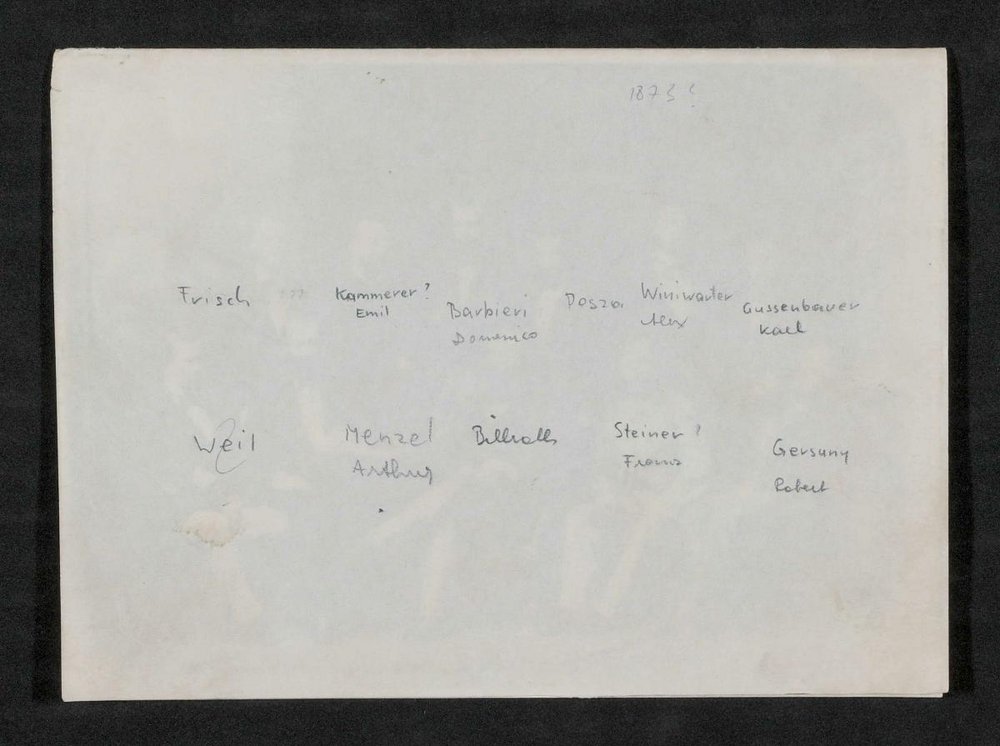 1873?
Frisch ?? Kammerer? Barbieri Dosza Winiwarter Gussenbauer
Emil Domenico Alex Karl
Weil Menzel Billroth Steiner ? Gersuny
Arthur Franz Robert